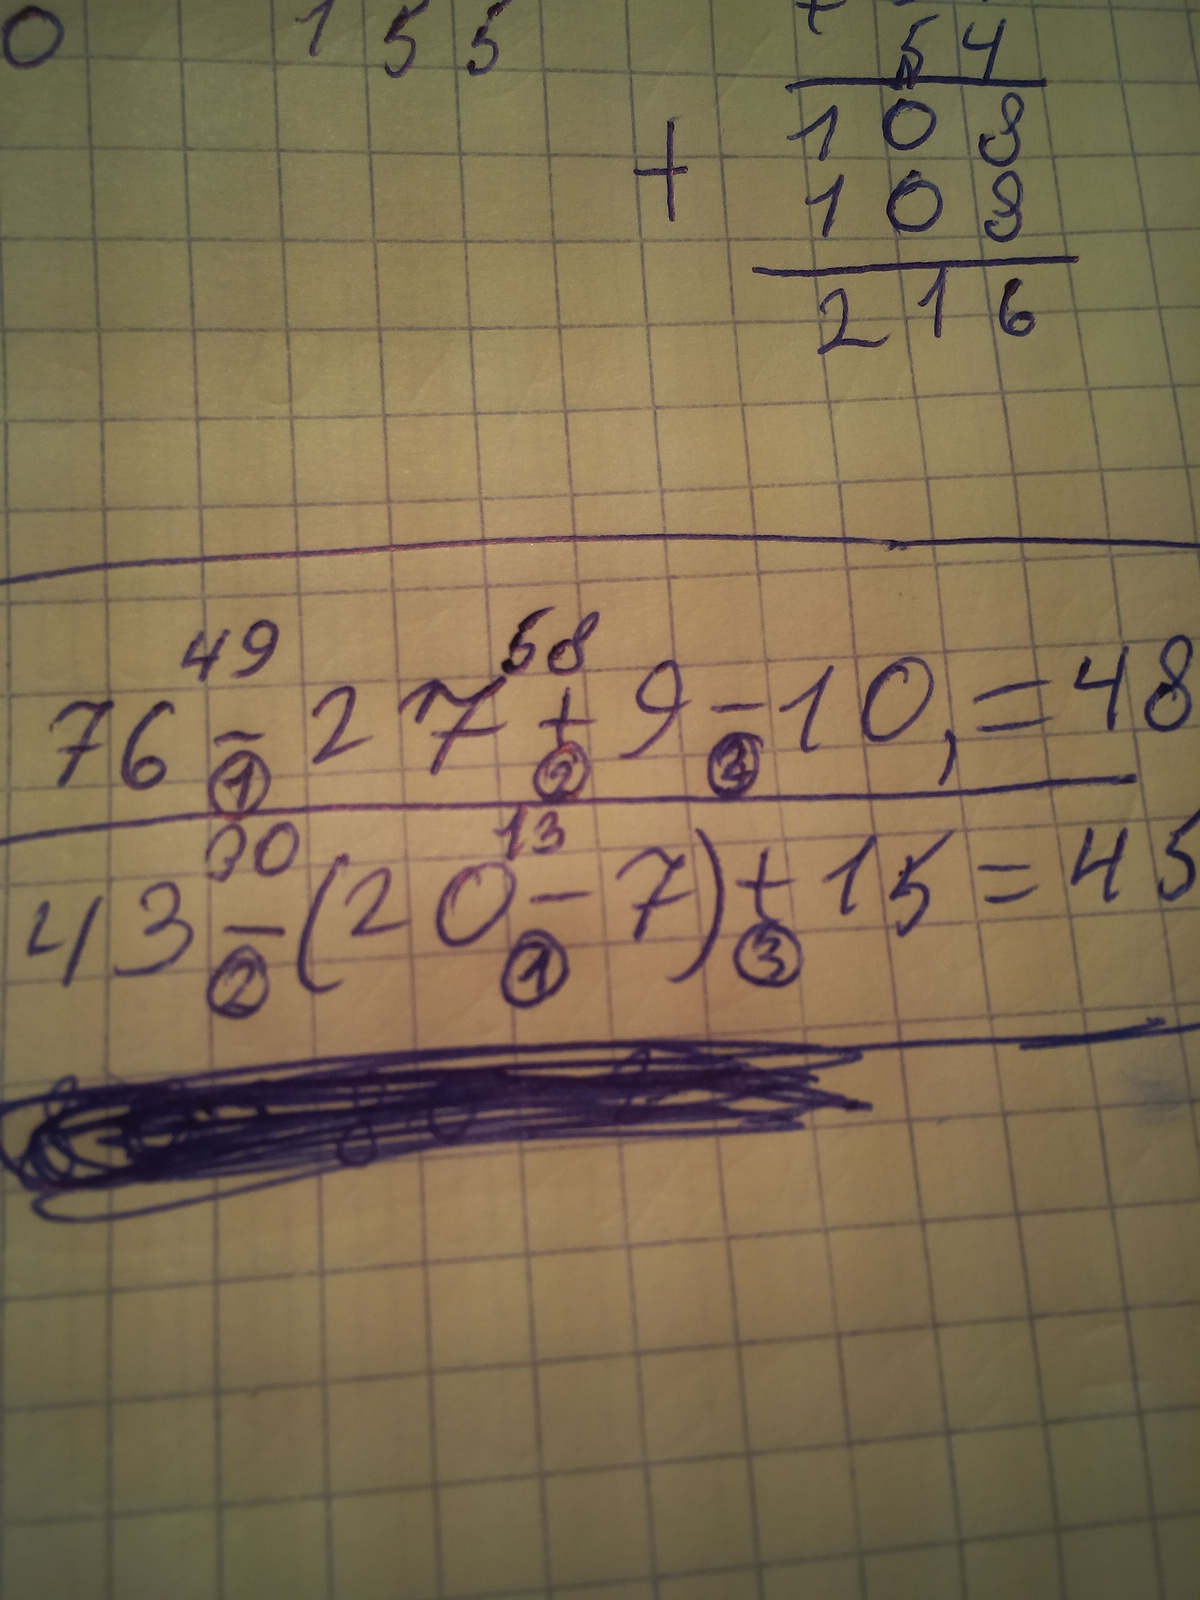 0 155
+ 54
108
+
108
216
49 58
76 - 27 + 9 - 10, = 48
1 2 3
30 13
43 - (20 - 7) + 15 = 45
2 1 3